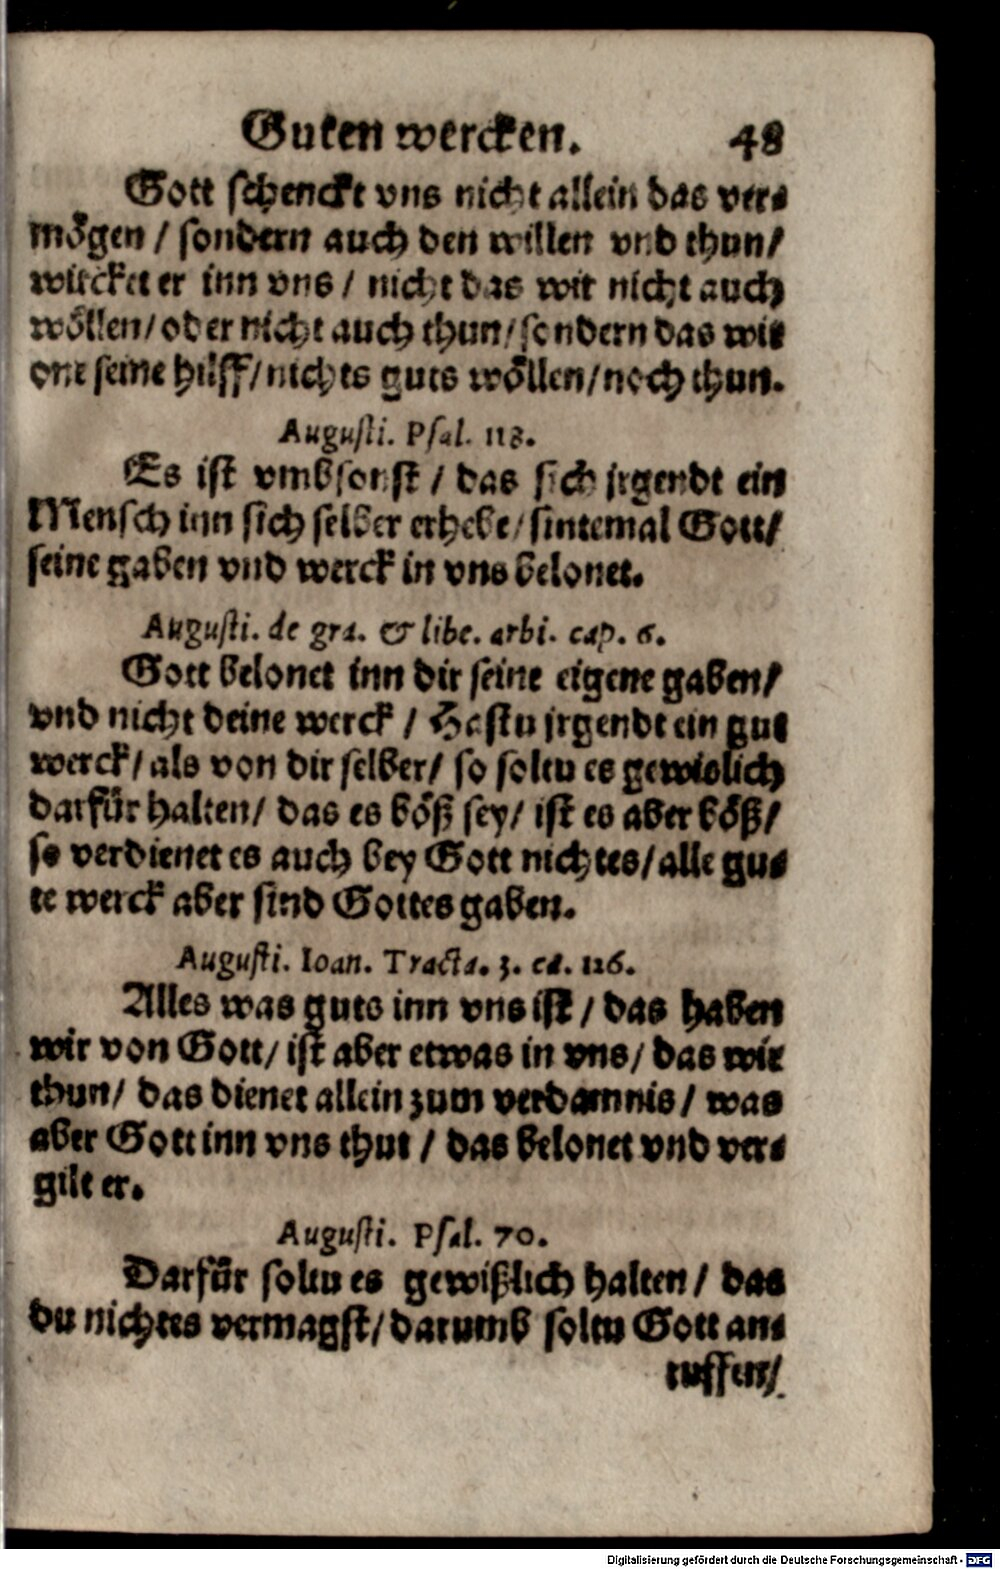 Guten wercken. 48
Gott schenckt vns nicht allein das ver-
mögen / sondern auch den willen vnd thun/
wircket er inn vns / nicht das wir nicht auch
wöllen/ oder nicht auch thun/ sondern das wir
one seine hülff/ nichts guts wöllen/ noch thun.
Augusti. Psal. 118.
Es ist vmbsonst / das sich jrgendt ein
Mensch inn sich selber erhebe/ sintemal Gott/
seine gaben vnd werck in vns belonet.
Augusti. de gra. & libe. arbi. cap. 6.
Gott belonet inn dir seine eigene gaben/
vnd nicht deine werck / Hastu jrgendt ein gut
werck/ als von dir selber/ so soltu es gewislich
darfür halten/ das es böß sey/ ist es aber böß/
so verdienet es auch bey Gott nichtes/ alle gu-
te werck aber sind Gottes gaben.
Augusti. Ioan. Tracta. 3. ca. 126.
Alles was guts inn vns ist / das haben
wir von Gott/ ist aber etwas in vns/ das wir
thun/ das dienet allein zum verdamnis / was
aber Gott inn vns thut / das belonet vnd ver-
gilt er.
Augusti. Psal. 70.
Darfür soltu es gewißlich halten / das
du nichtes vermagst/ darumb soltu Gott an-
ruffen/
Digitalisierung gefördert durch die Deutsche Forschungsgemeinschaft - DFG